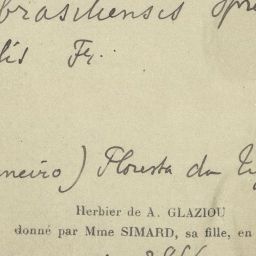 brasiliensis Spr
lis Fr.
neiro) Floresta da
Herbier de A. GLAZIOU
donné par Mme SIMARD, sa fille, en